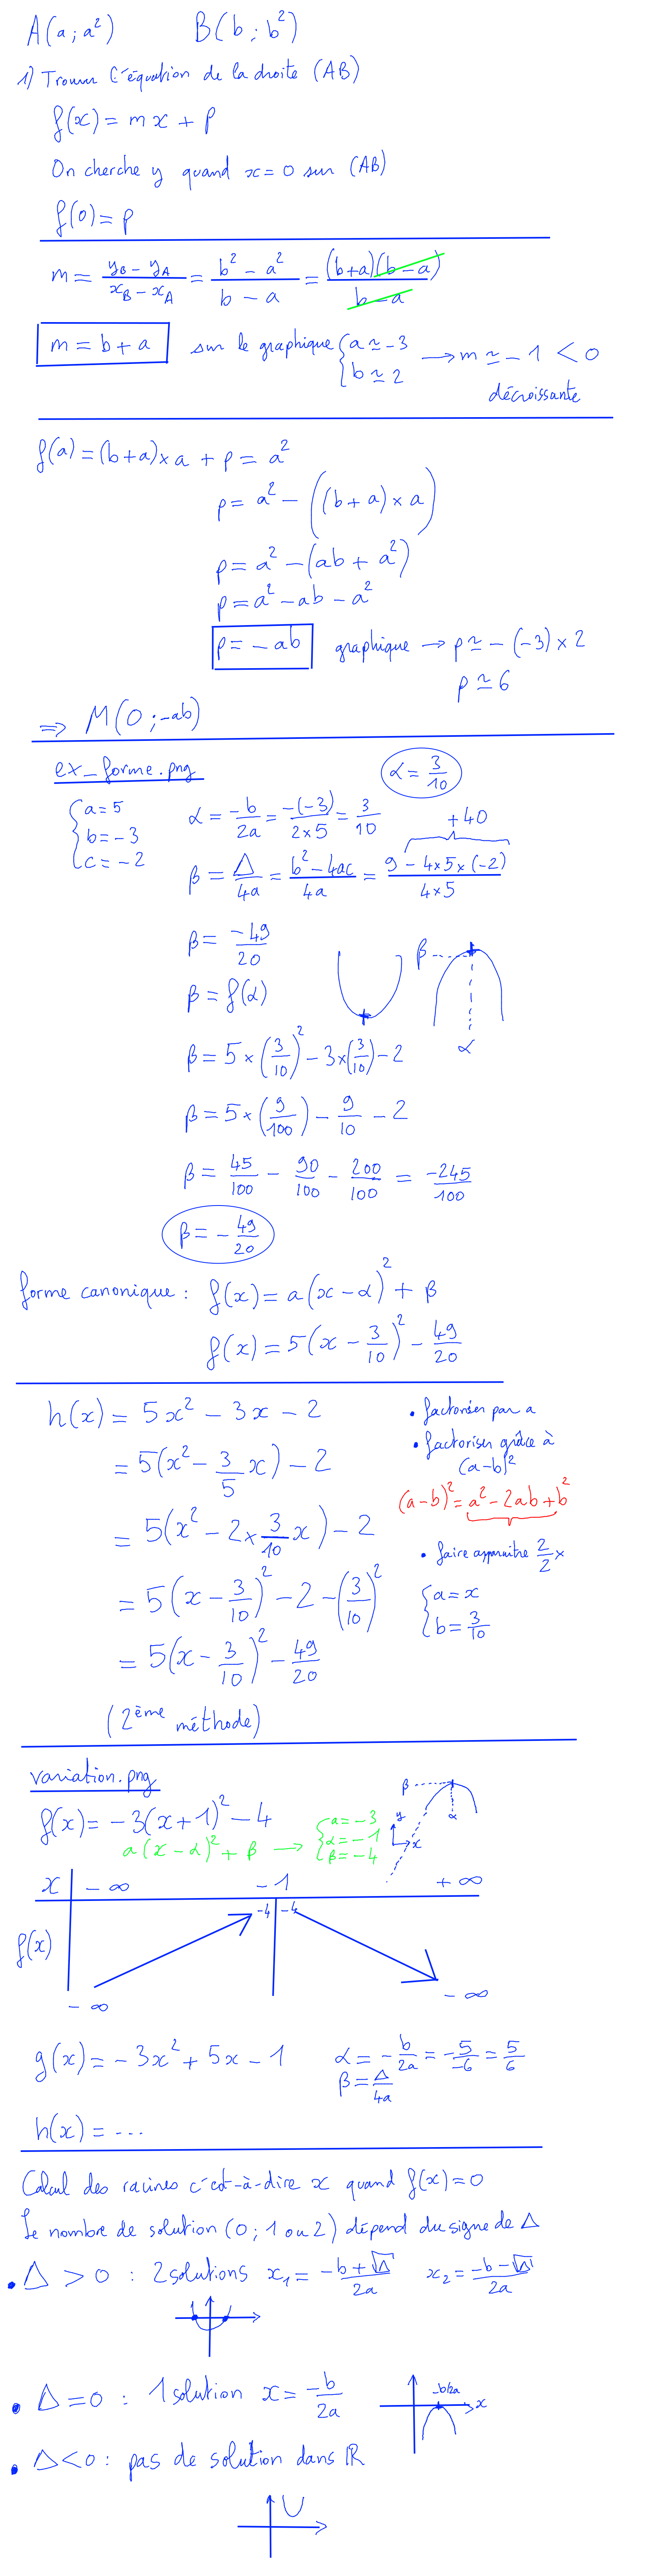 A(a ; a²) B(b ; b²)
1) Trouver l'équation de la droite (AB)
f(x) = mx + p
On cherche y quand x = 0 sur (AB)
f(0) = p
m = (yB − yA)/(xB − xA) = (b² − a²)/(b − a) = (b+a)(b−a)/(b−a)
m = b + a sur le graphique { a ≃ −3 → m ≃ −1 < 0
b ≃ 2
décroissante
f(a) = (b+a)×a + p = a²
p = a² − ((b+a)×a)
p = a² − (ab + a²)
p = a² − ab − a²
p = − ab graphique → p ≃ −(−3)×2
p ≃ 6
⇒ M(0 ; −ab)
ex_forme.png α = 3/10
{ a = 5
b = −3
c = −2
α = −b/2a = −(−3)/(2×5) = 3/10 +40
β = Δ/4a = (b² − 4ac)/4a = (9 − 4×5×(−2))/(4×5)
β = −49/20
β = f(α) β α
β = 5×(3/10)² − 3×(3/10) − 2
β = 5×(9/100) − 9/10 − 2
β = 45/100 − 90/100 − 200/100 = −245/100
β = − 49/20
forme canonique : f(x) = a(x − α)² + β
f(x) = 5(x − 3/10)² − 49/20
h(x) = 5x² − 3x − 2
= 5(x² − 3/5 x) − 2
= 5(x² − 2×3/10 x) − 2
= 5(x − 3/10)² − 2 − (3/10)²
= 5(x − 3/10)² − 49/20
(2ème méthode)
• factoriser par a
• factoriser grâce à
(a−b)²
(a−b)² = a² − 2ab + b²
• faire apparaître 2/2 ×
{ a = x
b = 3/10
variation.png
f(x) = −3(x+1)² − 4
a(x − α)² + β → { a = −3
α = −1
β = −4
β α y x
x −∞ −1 +∞
f(x) −4 −4
−∞ −∞
g(x) = −3x² + 5x − 1 α = −b/2a = −5/−6 = 5/6
β = Δ/4a
h(x) = ...
Calcul des racines c'est-à-dire x quand f(x) = 0
Le nombre de solution (0 ; 1 ou 2) dépend du signe de Δ
• Δ > 0 : 2 solutions x₁ = (−b + √Δ)/2a x₂ = (−b − √Δ)/2a
• Δ = 0 : 1 solution x = −b/2a −b/2a x
• Δ < 0 : pas de solution dans ℝ